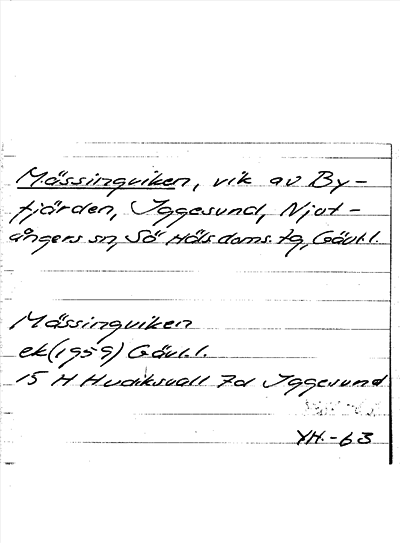 Mässingviken, vik av By-
fjärden, Iggesund, Njut-
ångers sn, Sö Häls. doms. tg, Gävl.l.
Mässingviken
ek (1959) Gävl.l.
15 H Hudiksvall 7d Iggesund
YH.-63